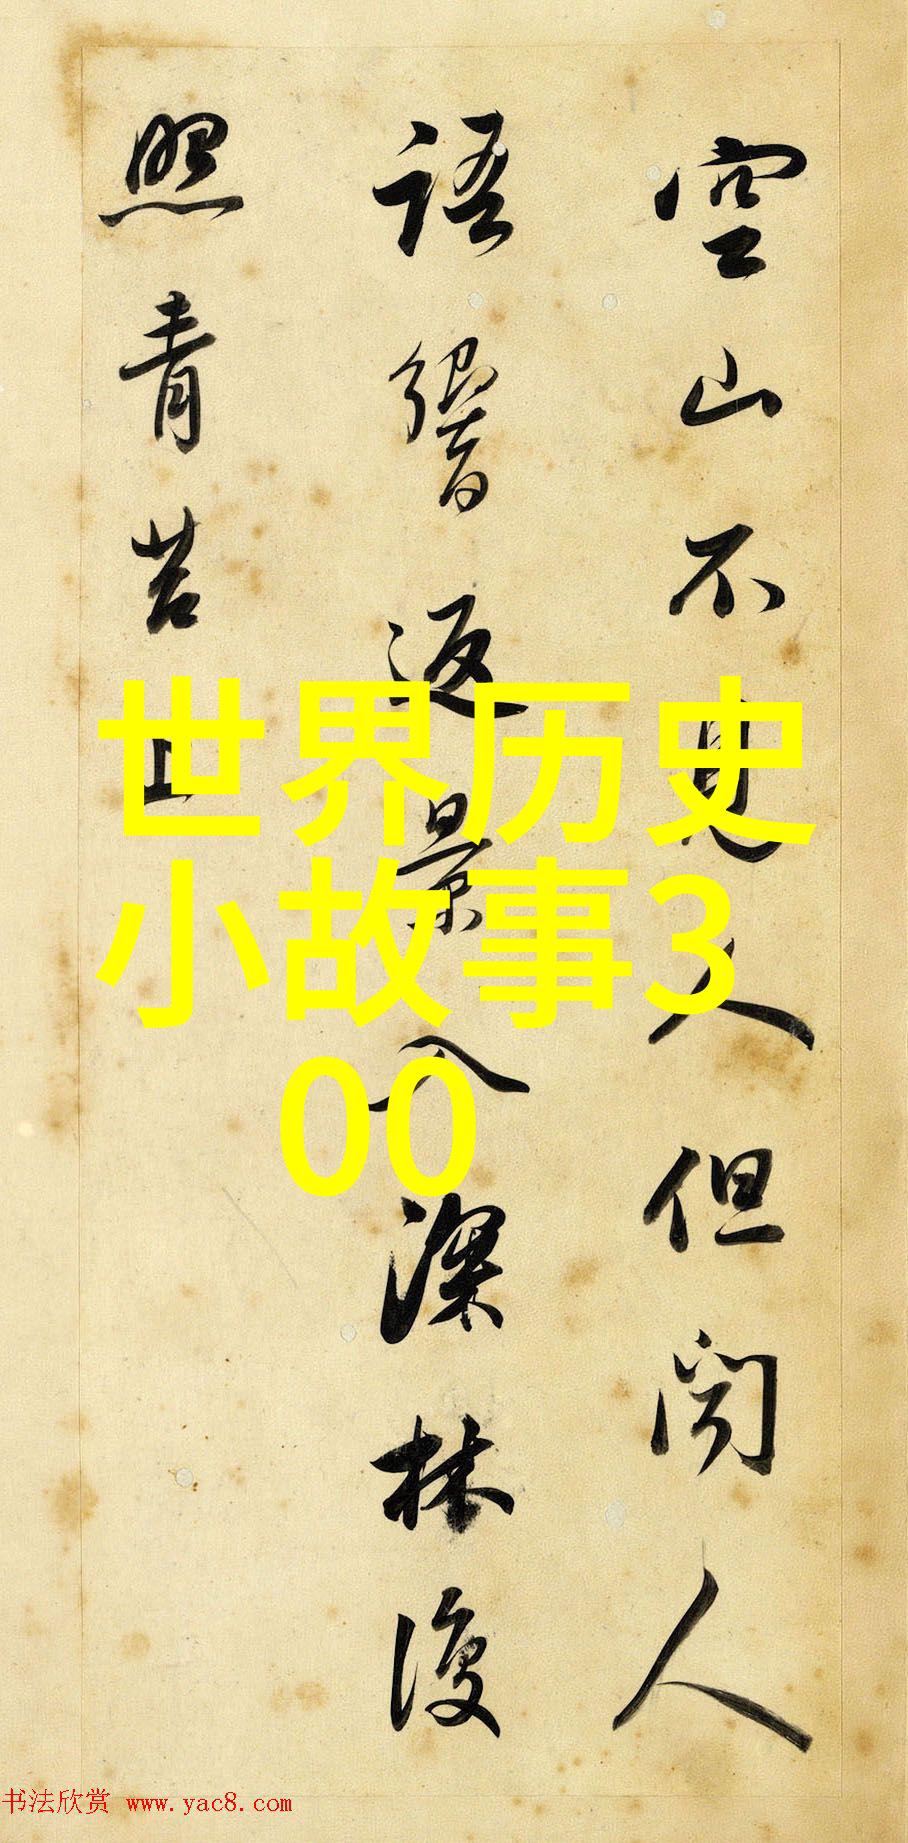 空山不見人但聞人
語響返景入深林復
照青苔上
世界历史
小故事3
00
书法欣赏 www.yac8.com